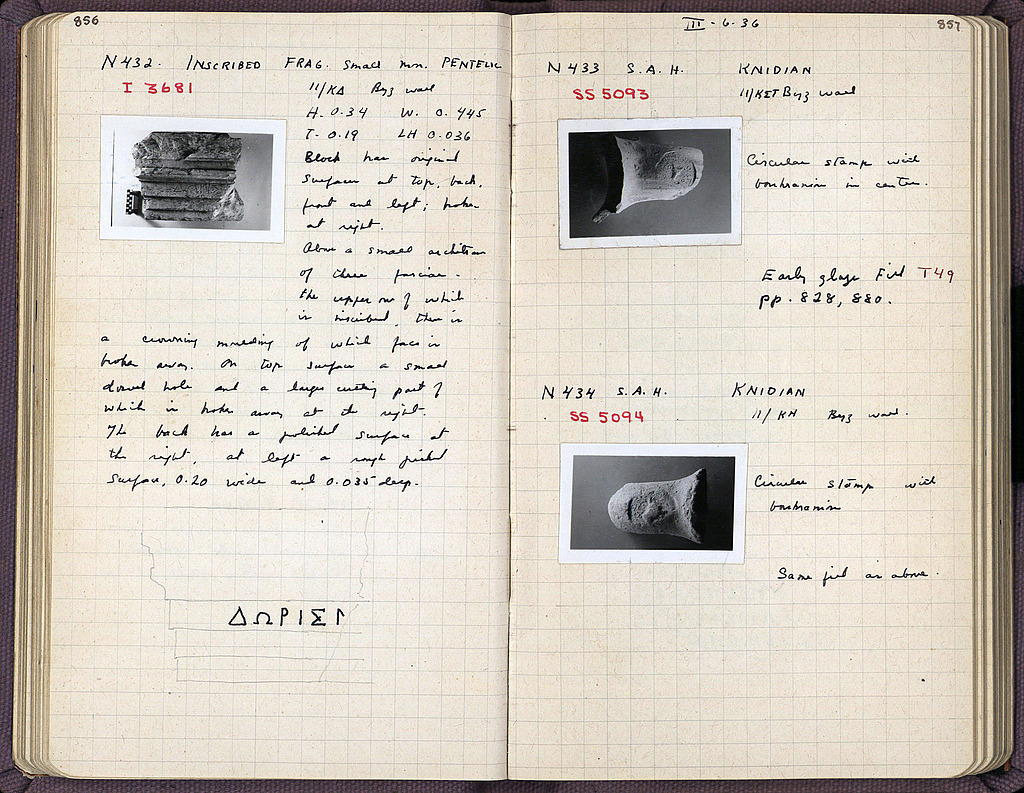 856
N 432. INSCRIBED FRAG. Small mn. PENTELIC
I 3681
11/ΚΔ Byz wall
H. 0.34 W. 0.445
T. 0.19 LH 0.036
Block has original
surface at top, back,
front and left; broken
at right.
Above a small architrave
of three fasciae -
the upper one of which
is inscribed, there is
a crowning moulding of which face is
broken away. On top surface a small
dowel hole and a larger cutting part of
which is broken away at the right.
The back has a polished surface at
the right, at left a rough picked
surface, 0.20 wide and 0.035 deep.
ΔΩΡΙΕΙ
III - 6 - 36
857
N 433 S.A.H. KNIDIAN
SS 5093
11/ΚΣΤ Byz wall
Circular stamp with
boukranion in center.
Early glaze Fill T49
pp. 828, 880.
N 434 S.A.H. KNIDIAN
SS 5094
11/ΚΗ Byz wall.
Circular stamp with
boukranion
Same fill as above.